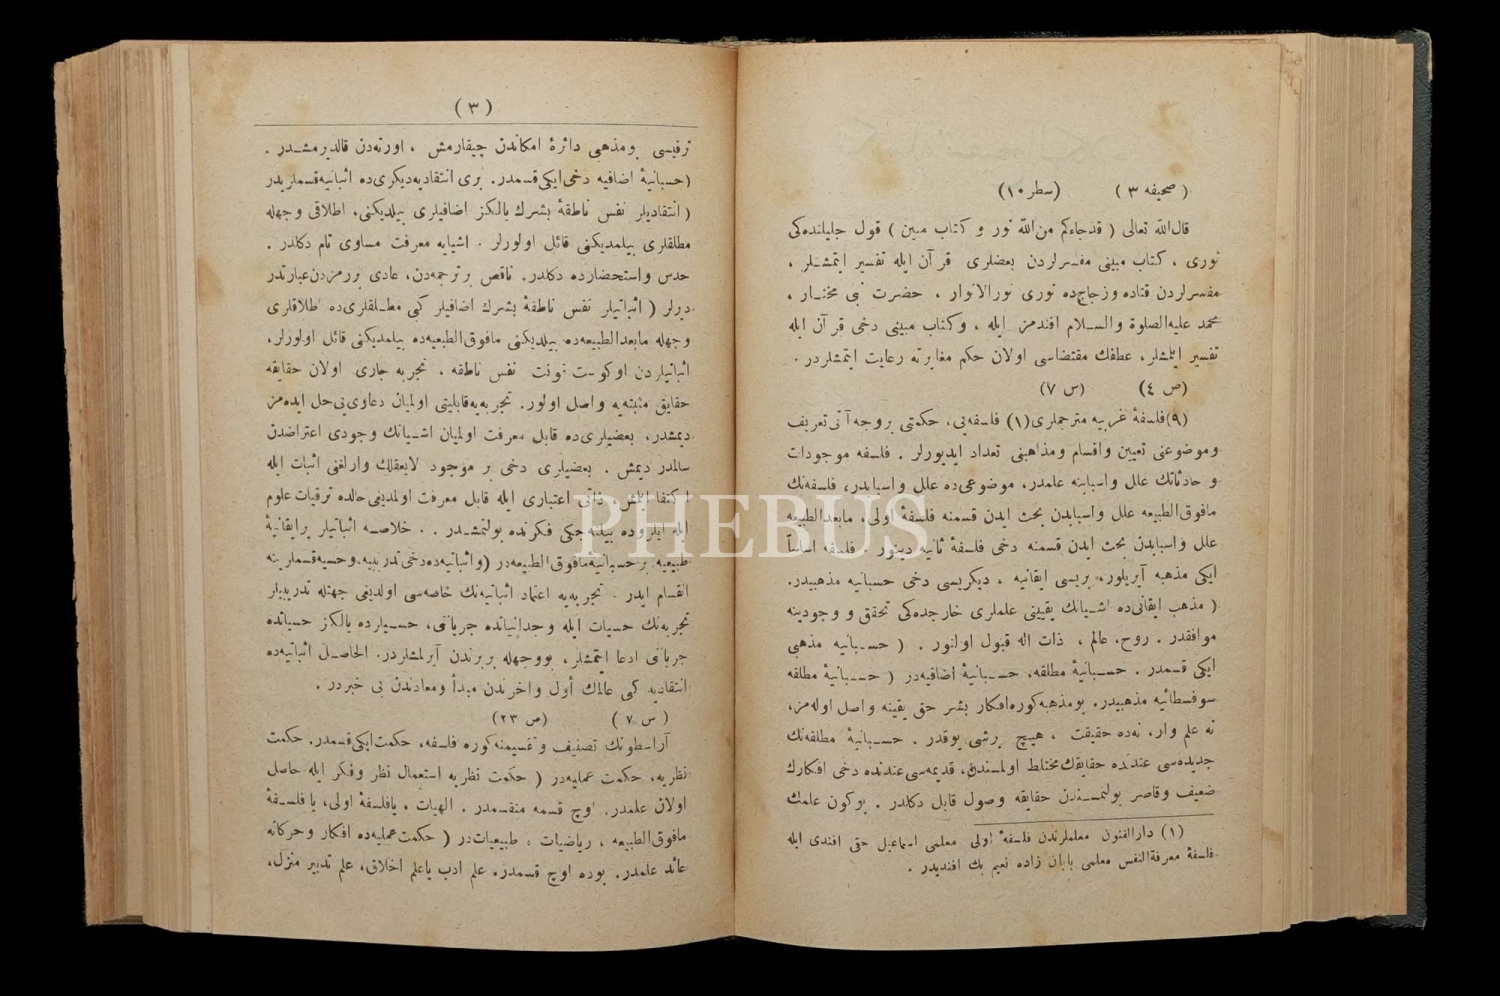 ( صحیفه ٣ ) (سطر ١٠)
قال‌الله تعالی ( قدجاءکم من‌الله نور و کتاب مبین ) قول جلیلنده‌کی
نوری ، کتاب مبینی مفسرلردن بعضلری قرآن ایله تفسیر ایتمشلر ،
مفسرلردن قتاده وزجاج‌ده نوری نورالانوار ، حضرت نبی مختار ،
محمد علیه‌الصلوة والسلام افندمز ایله ، وکتاب مبینی دخی قرآن ایله
تفسیر ایتمشلر، عطفك مقتضاسی اولان حکم مغایرته رعایت ایتمشلردر .
(ص ٤) (س ٧)
(٩) فلسفهٔ غربیه مترجملری(١) فلسفه‌یی، حکمتی بروجه‌آتی تعریف
وموضوعنی تعیین واقسام ومذاهبنی تعداد ایدیورلر . فلسفه موجودات
و حادثاتك علل واسبابنه علمدر، موضوعی‌ده علل واسبابدر، فلسفه‌نك
مافوق‌الطبیعه علل واسبابدن بحث ایدن قسمنه فلسفهٔ اولی، مابعدالطبیعه
علل واسبابدن بحث ایدن قسمنه دخی فلسفهٔ ثانیه دینور . فلسفه اساساً
ایکی مذهبه آیریلور، بریسی ایقانیه ، دیکریسی دخی حسبانیه مذهبیدر.
( مذهب ایقانی‌ده اشیانك یقینی علملری خارجده‌کی تحقق و وجودینه
موافقدر . روح، عالم ، ذات اله قبول اولنور . ( حسبانیه مذهبی
ایکی قسمدر . حسبانیهٔ مطلقه، حسبانیهٔ اضافیه‌در ( حسبانیهٔ مطلقه
سوفسطائیه مذهبیدر. بومذهبه‌کوره‌افکار بشر حق یقینه واصل اوله‌مز،
نه علم وار، نه‌ده حقیقت ، هیچ برشی یوقدر . حسبانیهٔ مطلقه‌نك
جدیده‌سی عندنده حقایقك مختلط اولمسندن، قدیمه‌سی‌عندنده دخی افکارك
ضعیف وقاصر بولنمسندن حقایقه وصول قابل دکلدر . بوکون علمك
(١) دارالفنون معلملرندن فلسفهٔ اولی معلمی اسماعیل حقی افندی ایله
فلسفهٔ معرفةالنفس معلمی بابان زاده نعیم بك افندیدر .
( ٣ )
ترقیسی بومذهبی دائرهٔ امکاندن چیقارمش ، اورته‌دن قالدیرمشدر .
(حسبانیهٔ اضافیه دخی‌ایکی‌قسمدر. بری انتقادیه‌دیکری‌ده اثباتیه‌قسملریدر
( انتقادیلر نفس ناطقهٔ بشرك یالکز اضافیلری بیلدیکنی، اطلاقی وجهله
مطلقلری بیلمدیکنی قائل اولورلر . اشیایه معرفت مساوی تام دکلدر .
حدس واستحضارده دکلدر. ناقص برترجمه‌دن، عادی بررمزدن‌عبارتدر
دیرلر ( اثباتیلر نفس ناطقهٔ بشرك اضافیلر کبی مطلقلری‌ده اطلاقلری
وجهله مابعدالطبیعه‌ده بیلدیکنی مافوق‌الطبیعه‌ده بیلمدیکنی قائل اولورلر،
اثباتیلردن اوکوست قونت نفس ناطقه ، تجربه جاری اولان حقایقه
حقایق مثبته‌یه واصل اولور. تجربه‌یه‌قابلیتی اولمیان دعاوی‌یی‌حل ایده‌مز
دیمشدر، بعضیلری‌ده قابل معرفت اولمیان اشیانك وجودی اعتراضدن
سالمدر دیمش . بعضیلری دخی بر موجود لایعقلك وارلغنی اثبات ایله
اکتفا ایتمش، ذاتی اعتباری ایله قابل معرفت اولمدیغی‌حالده ترقیات علوم
ایله ایلروده بیلنه‌جکی فکرنده بولنمشدر . . خلاصه اثباتیلر برایقانیهٔ
طبیعیه برحسبانیه‌مافوق‌الطبیعه‌در (واثباتیه‌ده‌دخی‌تدریبیه‌وحسیه‌قسملرینه
انقسام ایدر . تجربه‌یه اعتماد اثباتیه‌نك خاصه‌سی اولدیغی جهتله تدریبیلر
تجربه‌نك حسیات ایله وجدانیاتده جریاننی، حسیلرده یالکز حسیاتده
جریاننی ادعا ایتمشلر، بووجهله بربرندن آیرلمشلردر. الحاصل اثباتیه‌ده
انتقادیه کبی عالمك اول واخرندن مبدأ ومعادندن بی خبردر .
( س ٧ ) (ص ٢٣)
آراسطونك تصنیف وتقسیمنه‌کوره فلسفه، حکمت‌ایکی‌قسمدر. حکمت
نظریه، حکمت عملیه‌در ( حکمت نظریه استعمال نظر وفکر ایله حاصل
اولان علمدر. اوچ قسمه منقسمدر . الهیات ، یافلسفهٔ اولی، یافلسفهٔ
مافوق‌الطبیعه ، ریاضیات ، طبیعیات‌در ( حکمت‌عملیه‌ده افکار وحرکاته
عائد علمدر. بوده اوچ قسمدر. علم ادب یاعلم اخلاق، علم تدبیر منزل،
PHEBUS